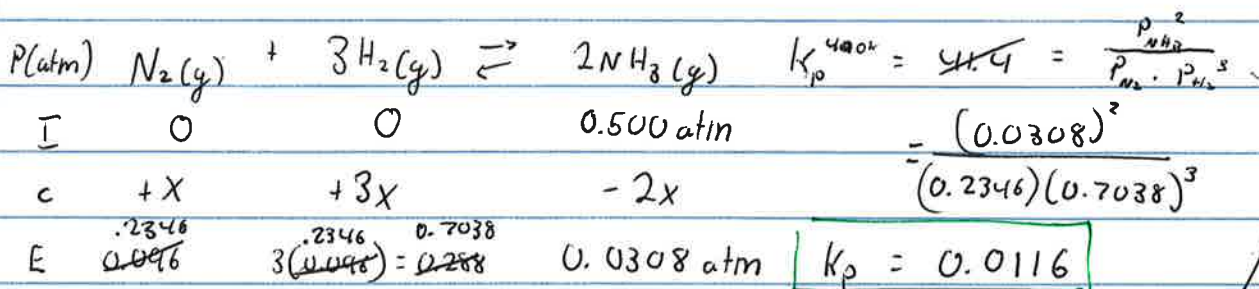 P(atm) N₂(g) + 3H₂(g) ⇄ 2NH₃(g) Kp^400K = 41.4 = P_NH₃² / P_N₂ · P_H₂³
I 0 0 0.500 atm = (0.0308)² / (0.2346)(0.7038)³
C +x +3x -2x
.2346 .2346 0.7038
E 0.096 3(0.096) = 0.288 0.0308 atm Kp = 0.0116